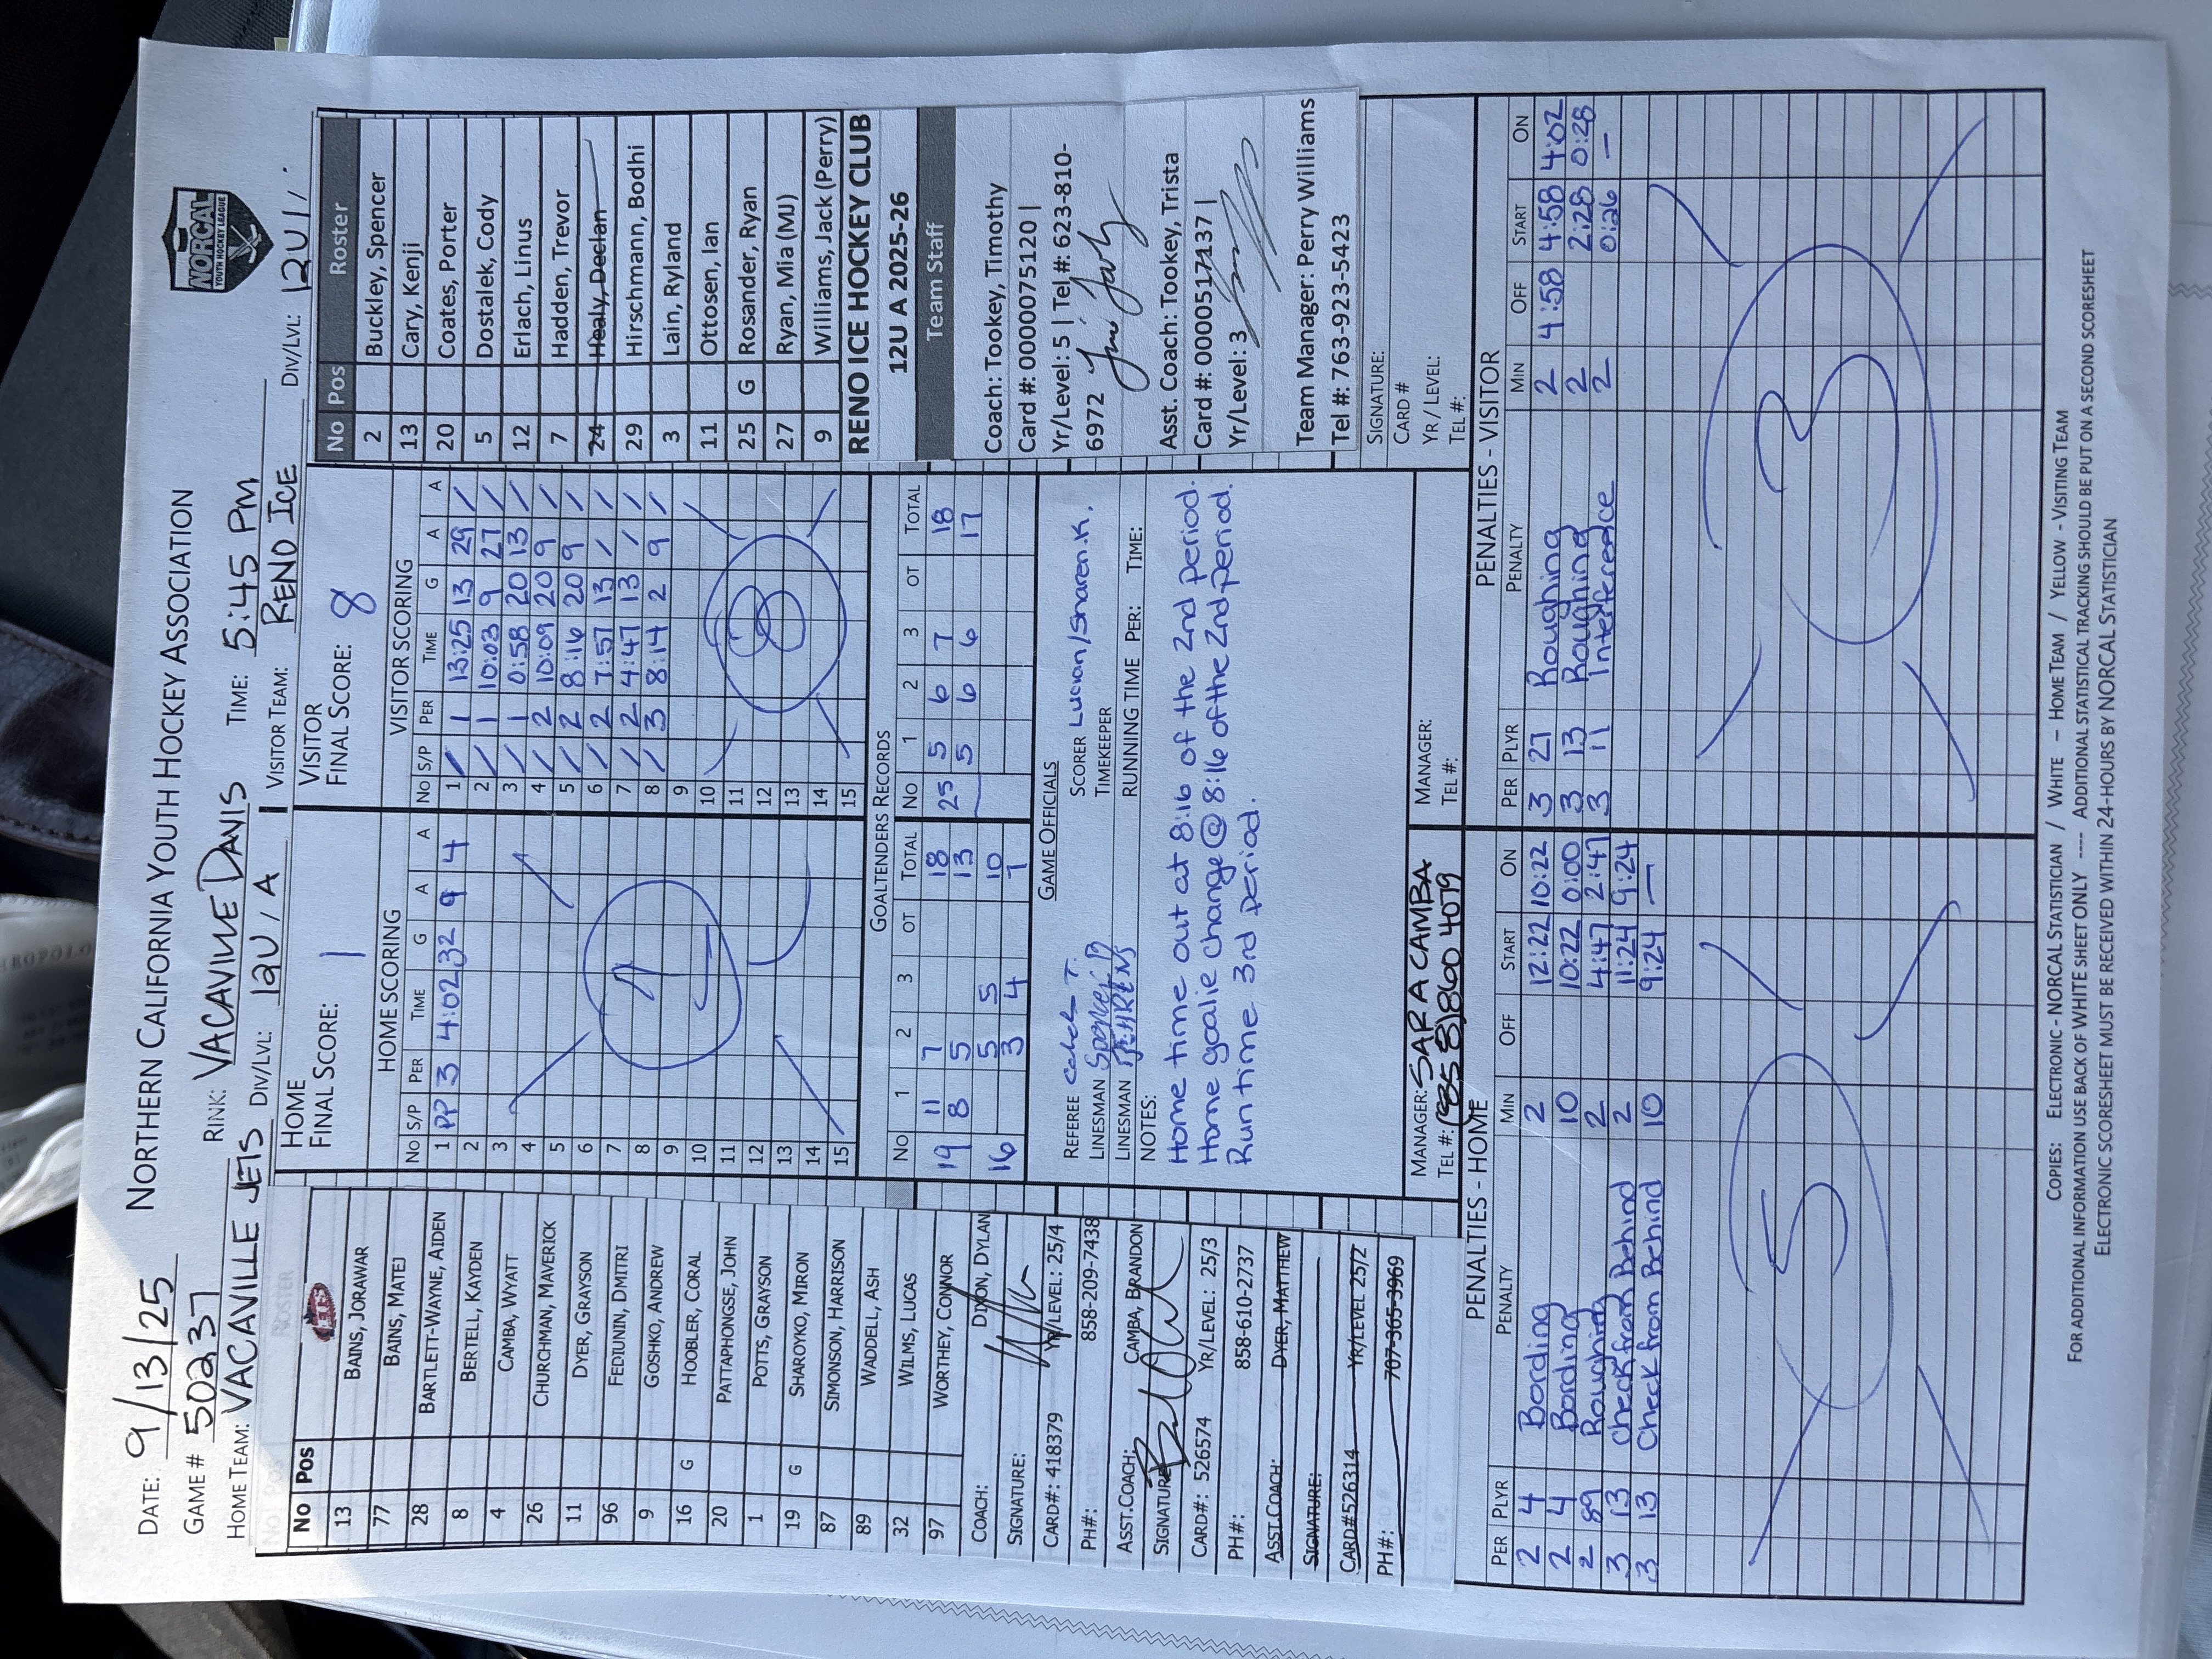 DATE: 9/13/25 NORTHERN CALIFORNIA YOUTH HOCKEY ASSOCIATION
NORCAL
YOUTH HOCKEY LEAGUE
GAME # 50237 RINK: VACAVILLE DAVIS TIME: 5:45 PM
HOME TEAM: VACAVILLE JETS DIV/LVL: 12U / A VISITOR TEAM: RENO ICE DIV/LVL: 12U/
No Pos
13 BAINS, JORAWAR
77 BAINS, MATEJ
28 BARTLETT-WAYNE, AIDEN
8 BERTELL, KAYDEN
4 CAMBA, WYATT
26 CHURCHMAN, MAVERICK
11 DYER, GRAYSON
96 FEDIUNIN, DMITRI
9 GOSHKO, ANDREW
16 G HOOBLER, CORAL
20 PATTAPHONGSE, JOHN
1 POTTS, GRAYSON
19 G SHAROYKO, MIRON
87 SIMONSON, HARRISON
89 WADDELL, ASH
32 WILMS, LUCAS
97 WORTHEY, CONNOR
COACH: DIXON, DYLAN
SIGNATURE:
CARD#: 418379 YR/LEVEL: 25/4
PH#: 858-209-7438
ASST.COACH: CAMBA, BRANDON
SIGNATURE:
CARD#: 526574 YR/LEVEL: 25/3
PH#: 858-610-2737
ASST.COACH: DYER, MATTHEW
SIGNATURE:
CARD#526314 YR/LEVEL 25/2
PH#: 707-365-3969
HOME
FINAL SCORE: 1
HOME SCORING
No S/P PER TIME G A A
1 PP 3 4:02 32 9 4
2
3
4
5
6
7
8
9
10
11
12
13
14
15
1
VISITOR
FINAL SCORE: 8
VISITOR SCORING
No S/P PER TIME G A A
1 / 1 13:25 13 29 /
2 / 1 10:03 9 27 /
3 / 1 0:58 20 13 /
4 / 2 10:09 20 9 /
5 / 2 8:16 20 9 /
6 / 2 7:57 13 / /
7 / 2 4:47 13 / /
8 / 3 8:14 2 9 /
9
10
11
12
13
14
15
8
GOALTENDERS RECORDS
No 1 2 3 OT TOTAL No 1 2 3 OT TOTAL
19 11 7 18 25 5 6 7 18
8 5 13 5 6 6 17
16 5 5 10
3 4 7
GAME OFFICIALS
REFEREE Caleb T. SCORER Lucian/Sharen.K.
LINESMAN TIMEKEEPER
LINESMAN RUNNING TIME PER: TIME:
NOTES:
Home time out at 8:16 of the 2nd period.
Home goalie change @ 8:16 of the 2nd period.
Run time 3rd period.
MANAGER: SARA CAMBA MANAGER:
TEL #: (858)860 4079 TEL #:
No Pos Roster
2 Buckley, Spencer
13 Cary, Kenji
20 Coates, Porter
5 Dostalek, Cody
12 Erlach, Linus
7 Hadden, Trevor
24 Healy, Declan
29 Hirschmann, Bodhi
3 Lain, Ryland
11 Ottosen, Ian
25 G Rosander, Ryan
27 Ryan, Mia (MJ)
9 Williams, Jack (Perry)
RENO ICE HOCKEY CLUB
12U A 2025-26
Team Staff
Coach: Tookey, Timothy
Card #: 0000075120 |
Yr/Level: 5 | Tel #: 623-810-
6972
Asst. Coach: Tookey, Trista
Card #: 0000517137 |
Yr/Level: 3
Team Manager: Perry Williams
Tel #: 763-923-5423
SIGNATURE:
CARD #
YR / LEVEL:
TEL #:
PENALTIES - HOME
PER PLYR PENALTY MIN OFF START ON
2 4 Bording 2 12:22 10:22
2 4 Bording 10 10:22 0:00
2 89 Roughing 2 4:47 2:47
3 13 Check from Behind 2 11:24 9:24
3 13 Check from Behind 10 9:24 —
5
PENALTIES - VISITOR
PER PLYR PENALTY MIN OFF START ON
3 27 Roughing 2 4:58 4:58 4:02
3 13 Roughing 2 2:28 0:28
3 11 Interference 2 0:26 —
3
COPIES: ELECTRONIC - NORCAL STATISTICIAN / WHITE – HOME TEAM / YELLOW - VISITING TEAM
FOR ADDITIONAL INFORMATION USE BACK OF WHITE SHEET ONLY ---- ADDITIONAL STATISTICAL TRACKING SHOULD BE PUT ON A SECOND SCORESHEET
ELECTRONIC SCORESHEET MUST BE RECEIVED WITHIN 24-HOURS BY NORCAL STATISTICIAN